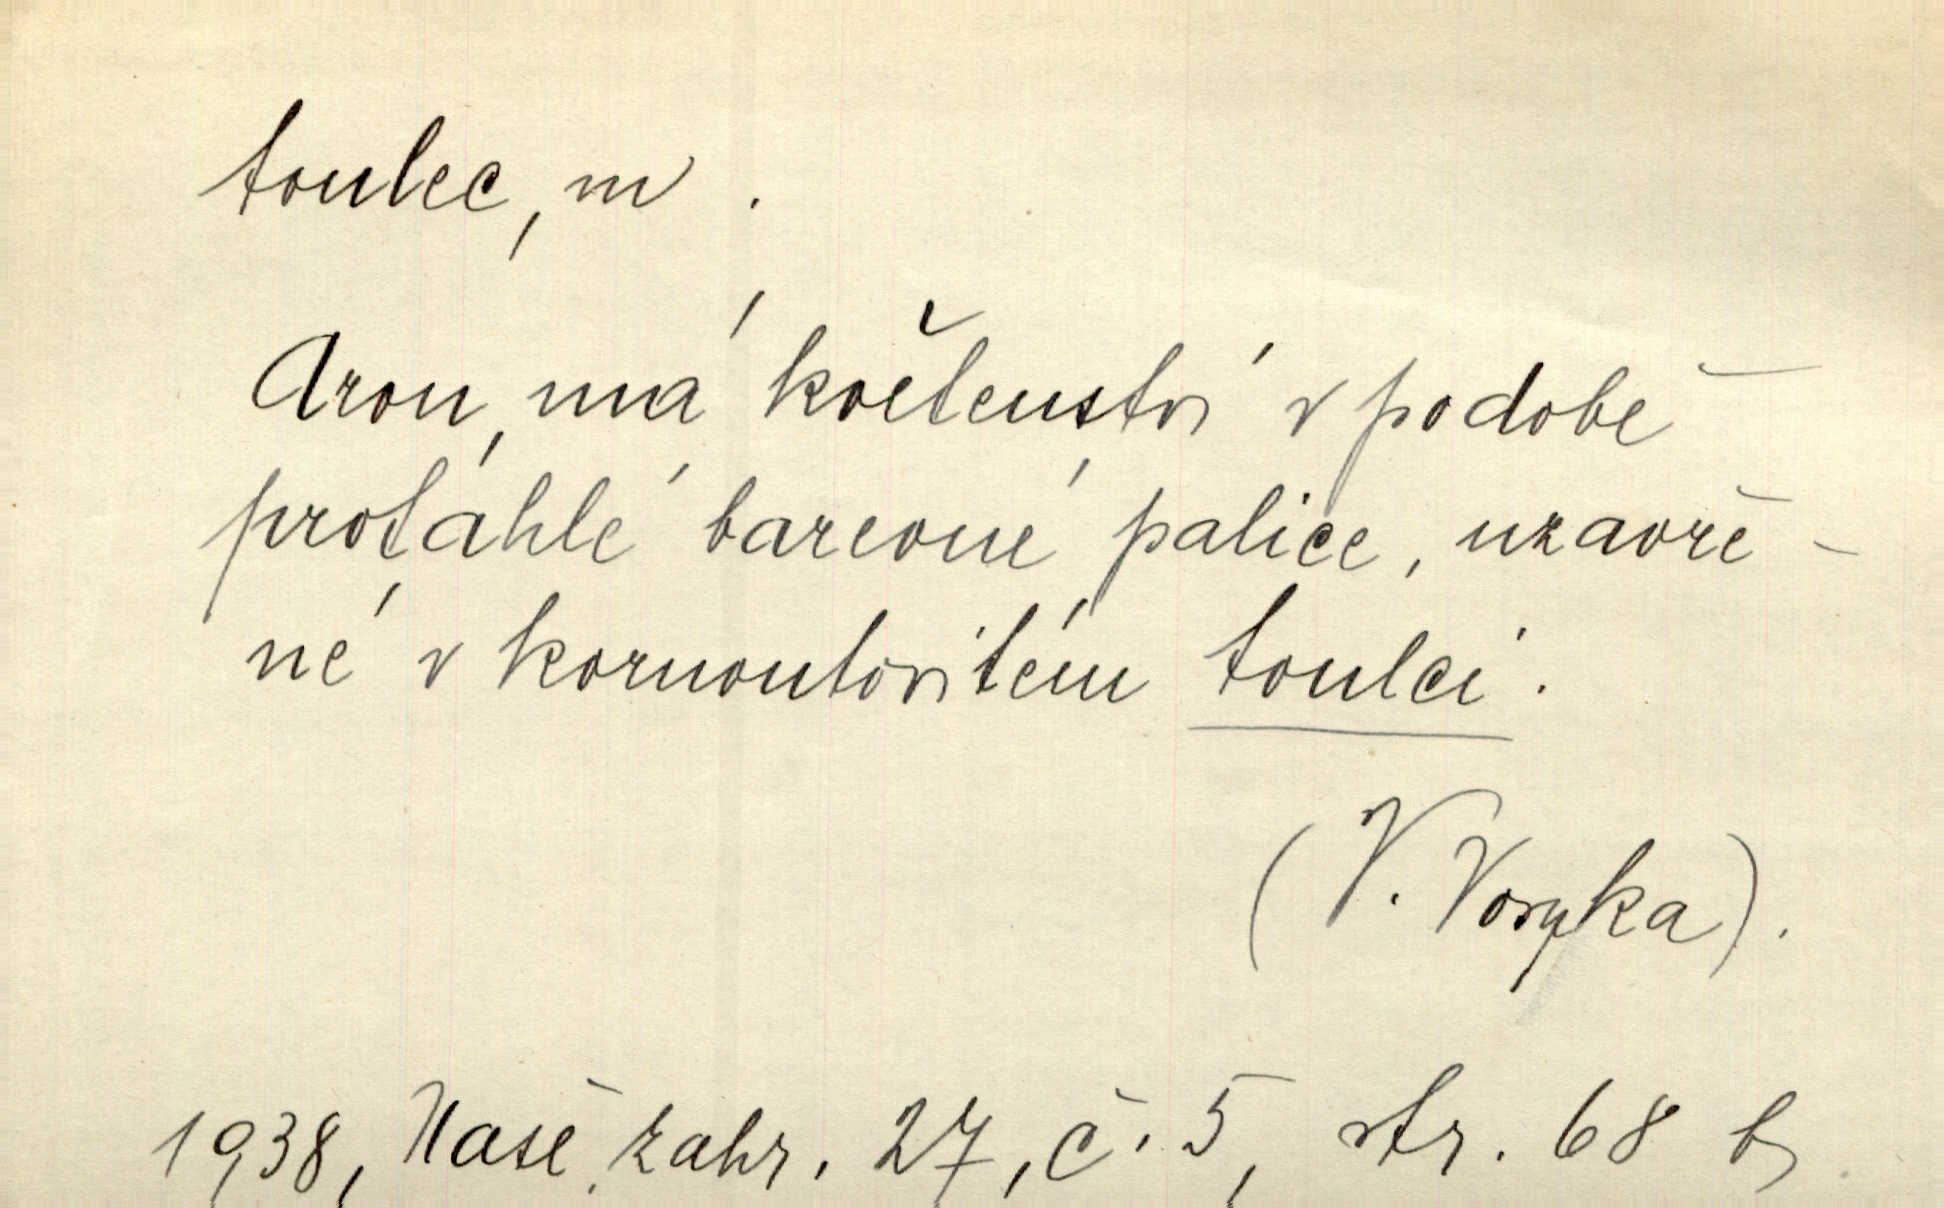 toulec, m.
Aron, má květenství v podobě
protáhlé barevné palice, uzavře-
né v kornoutovitém toulci.
(V. Vosyka).
1938, Naše zahr. 27, č. 5, str. 68 b